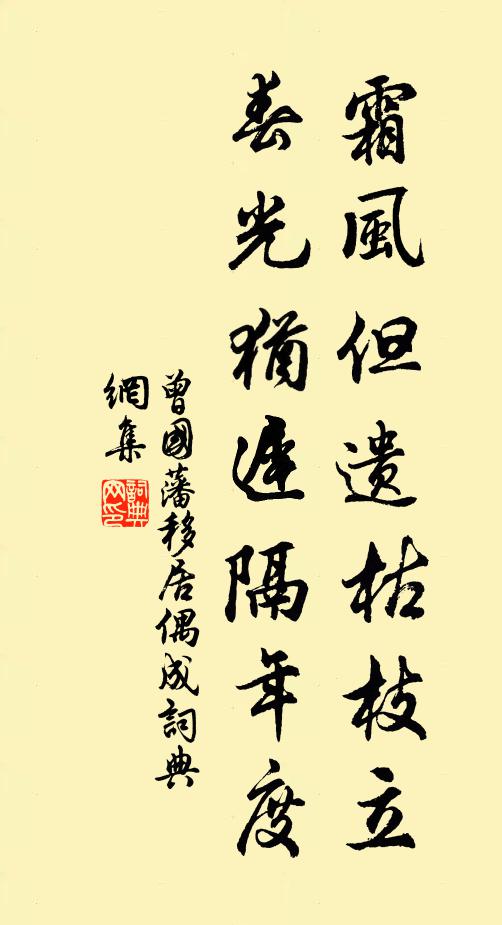 霜風但遺枯枝立
春光猶遲隔年度
曾國藩移居偶成詞典
網集
詞典
网印